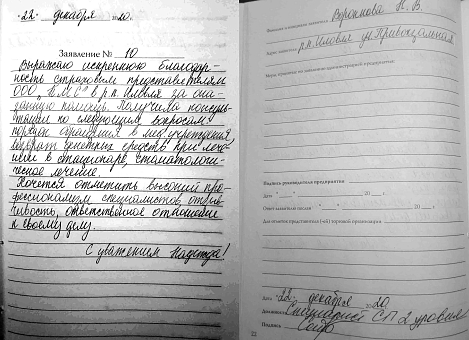 "22" декабря 2020 г.
Заявление № 10
Выражаю искреннюю благодар-
ность страховым представителям
ООО "КМС" в р.п. Иловля за ока-
занную помощь. Получила консуль-
тации по следующим вопросам:
порядок обращения в мед. учреждения,
возврат денежных средств при лече-
нии в стационаре, стоматологи-
ческое лечение.
Хочется отметить высокий про-
фессионализм специалистов, отзыв-
чивость, ответственное отношение
к своему делу.
С уважением Надежда!
Фамилия и инициалы заявителя Воронкова Н. В.
Адрес заявителя р.п. Иловля ул. Привокзальная
Меры, принятые по заявлению администрацией предприятия
Подпись руководителя предприятия
Дата " " 20 г.
Ответ заявителю послан " " 20 г.
Для отметок представителя (-ей) торговой организации
Дата "22" декабря 2020
Должность Специалист СП 2 уровня
Подпись